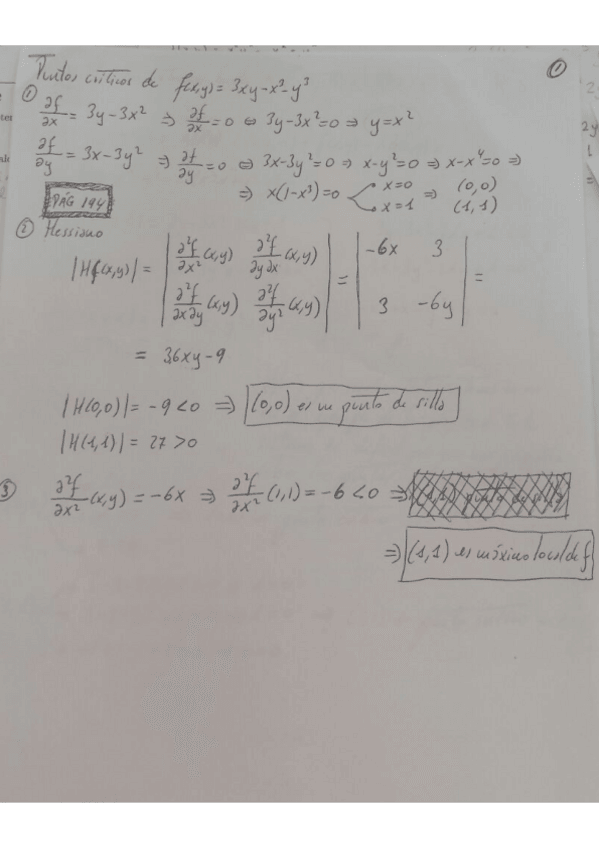 Puntos críticos de f(x,y) = 3xy - x³ - y³ ①
① ∂f/∂x = 3y - 3x² ⇒ ∂f/∂x = 0 ⇔ 3y - 3x² = 0 ⇒ y = x²
∂f/∂y = 3x - 3y² ⇒ ∂f/∂y = 0 ⇔ 3x - 3y² = 0 ⇒ x - y² = 0 ⇒ x - x⁴ = 0 ⇒
⇒ x(1 - x³) = 0 x = 0 x = 1 ⇒ (0,0) (1,1)
PÁG 194
② Hessiano
|Hf(x,y)| = | ∂²f/∂x² (x,y) ∂²f/∂y∂x (x,y) | = | -6x 3 | =
| ∂²f/∂x∂y (x,y) ∂²f/∂y² (x,y) | | 3 -6y |
= 36xy - 9
|H(0,0)| = -9 < 0 ⇒ (0,0) es un punto de silla
|H(1,1)| = 27 > 0
③ ∂²f/∂x² (x,y) = -6x ⇒ ∂²f/∂x² (1,1) = -6 < 0 ⇒
⇒ (1,1) es máximo local de f